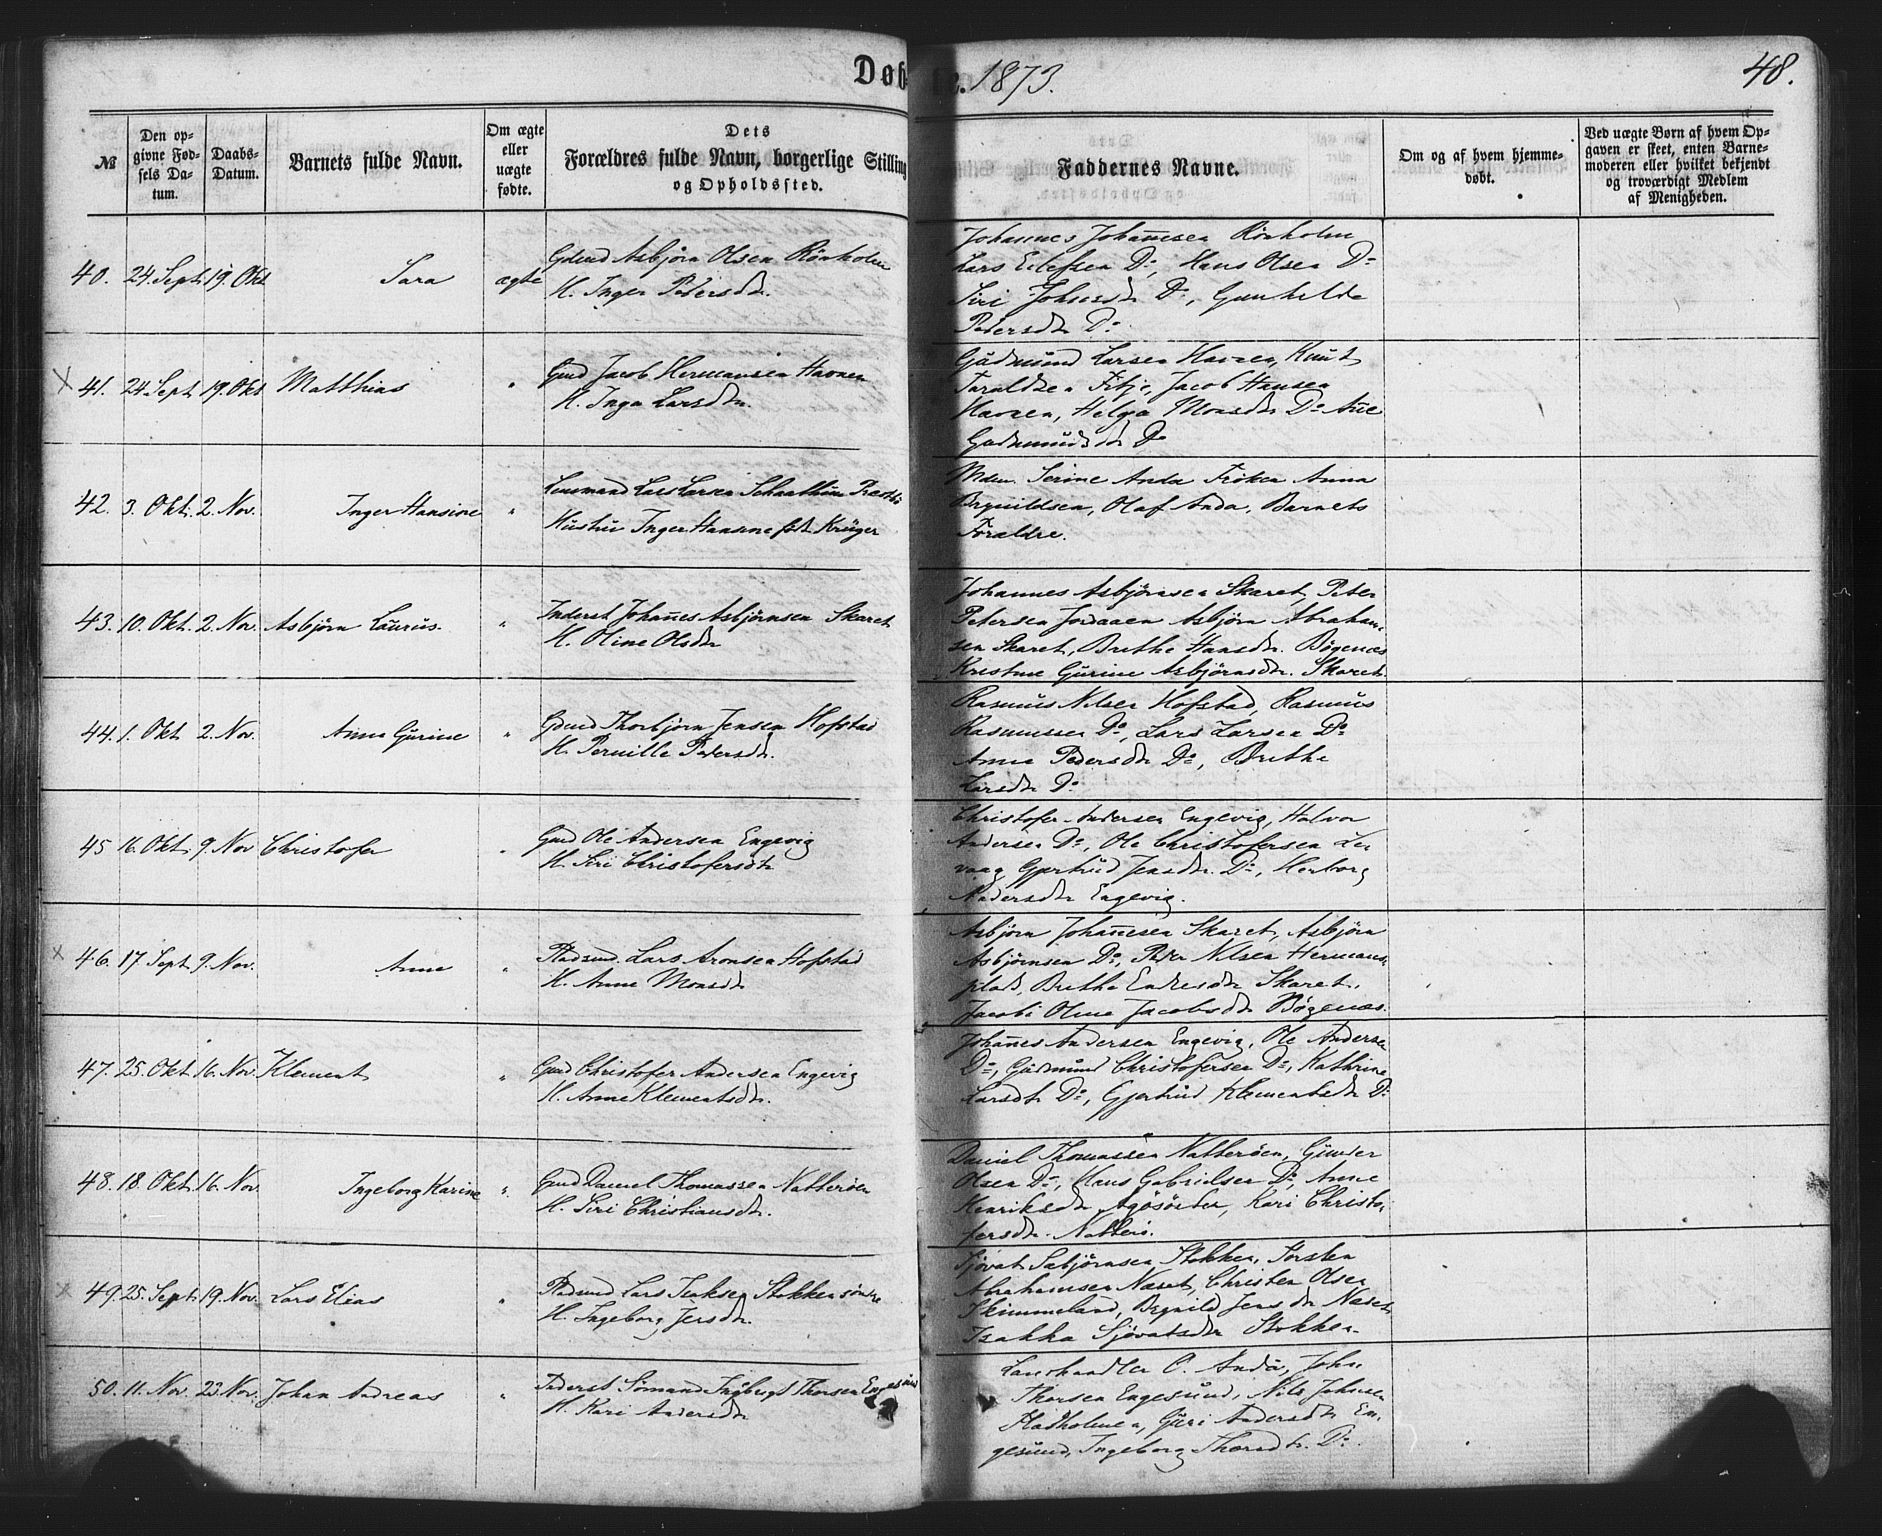 Døbte. 1873. 48.
№ | Den opgivne Fødsels Datum. | Daabs-Datum. | Barnets fulde Navn. | Om ægte eller uægte fødte. | Dets Forældres fulde Navn, borgerlige Stilling og Opholdssted. | Faddernes Navne. | Om og af hvem hjemmedøbt. | Ved uægte Børn af hvem Opgaven er skeet, enten Barnemoderen eller hvilket bekjendt og troværdigt Medlem af Menigheden.
40. 24. Sept. 19. Okt Sara ægte
Gdmd Asbjørn Olsen Rönholm
H. Inger Pedersdtr.
Johannes Johannesen Rönholm
Lars Eilefsen Do, Hans Olsen Do
Siri Johnsdtr Do, Gunhilde
Pedersdtr Do
41. 24 Sept 19. Okt Matthias "
Gmd Jacob Hermansen Havnen
H. Inga Larsdtr.
Gudmund Larsen Havnen, Knut
Taraldsen Fitje, Jacob Hansen
Havnen, Helga Monsdtr Do Ane
Gudmundsdtr Do
42. 3. Okt. 2. Nov. Inger Hansine "
Lensmand Lars Larsen Schaathun
Hustru Inger Hansine født Krüger
Mdm. Serine Anda Fröken Anna
Brynildsen, Olaf Anda, Barnets
Forældre.
43. 10. Okt. 2. Nov. Asbjørn Laurus. "
Inderst Johannes Asbjørnsen Skaret
H. Oline Olsdtr
Johannes Asbjørnsen Skaret, Peter
Petersen Jordaaen Asbjørn Abraham-
sen Skaret, Brethe Hansdtr. Bögenæs
Kristine Gurine Asbjørnsdtr. Skaret
44. 1. Okt 2. Nov. Anna Gurine "
Gdmd Thorbjørn Jensen Hofstad
H. Pernille Pedersdtr.
Rasmus Nilsen Hofstad, Rasmus
Rasmussen Do, Lars Larsen Do
Anna Pedersdtr Do, Brethe
Larsdtr Do
45 16. Okt. 9. Nov Christofer "
Gmd Ole Andersen Engevig
H. Siri Christofersdtr
Christofer Andersen Engevig, Halvor
Andersen Do, Ole Christofersen Ler
vaag Gjertrud Jensdtr. Do, Herborg
Andersdtr Engevig.
46. 17 Sept 9. Nov. Anne "
Pladsmd. Lars Aronsen Hofstad
H. Anne Monsdtr
Asbjørn Johannesen Skaret, Asbjørn
Asbjørnsen Do, Peder Nilsen Hermans-
plads, Brethe Endresdtr Skaret,
Jacobi Oline Jacobsdtr Bögenæs.
47. 25. Okt 16. Nov. Klement "
Gmd Christofer Andersen Engevig
H. Anne Klementsdtr.
Johannes Andersen Engevig, Ole Andersen
Do, Gudmund Christofersen Do, Kathrine
Larsdtr Do, Gjertrud Klementsdtr Do
48. 18. Okt. 16. Nov. Ingeborg Karine "
Gmd Daniel Thomassen Natterøen
H. Siri Christiansdtr.
Daniel Thomassen Natterøen, Gunder
Olsen Do, Hans Gabrielsen Do, Anne
Henriksdtr Kari Christo-
fersdtr. Natterö.
49. 25. Sept. 19. Nov. Lars Elias "
Pladsmd Lars Isaksen Stokken söndre
H. Ingeborg Jensdtr.
Sjovat Sabjørnsen Stokken, Torsten
Abrahamsen Næset, Christen Olsen
Skimmeland, Brynild Jensdtr Næset
Isakka Sjovatsdtr Stokken.
50. 11. Nov. 23. Nov. Johan Andreas "
Inderst Sömand Ingbrigt Thorsen Engesund
H. Kari Andersdtr
Landhandler O. Anda, John
Thorsen Engesund, Nils Johnsen
Fladholmen, Guri Andersdtr En-
gesund, Ingeborg Thorsdtr. Do.